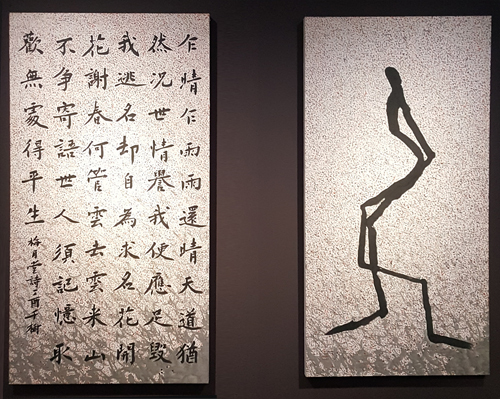 乍晴乍雨雨還晴天道猶
然況世情譽我便應足毀
我逃名却自為求名花開
花謝春何管雲去雲来山
不争寄語世人須記憶取
歡無處得平生 梅月堂詩